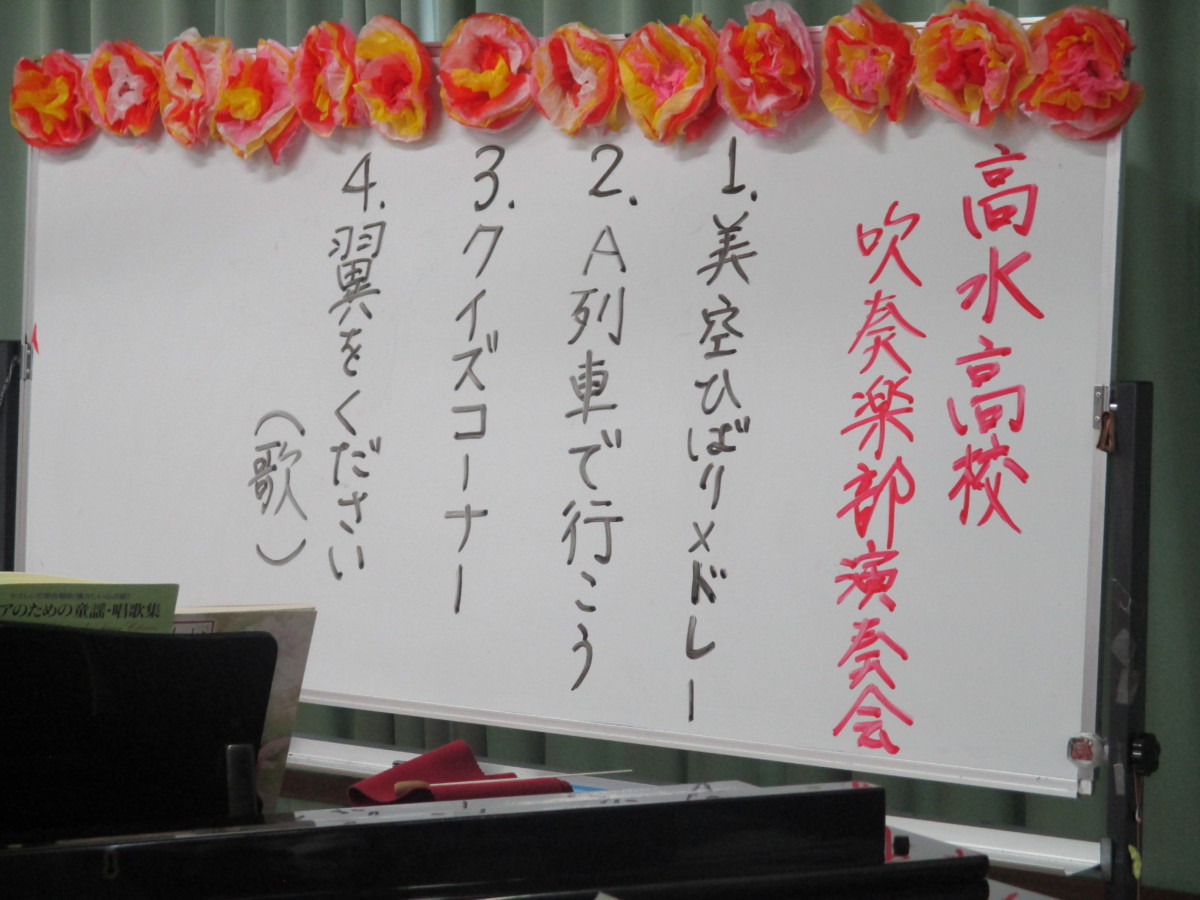 高水高校
吹奏楽部演奏会
1.美空ひばりメドレー
2.A列車で行こう
3.クイズコーナー
4.翼をください
(歌)
アのための童謡・唱歌集